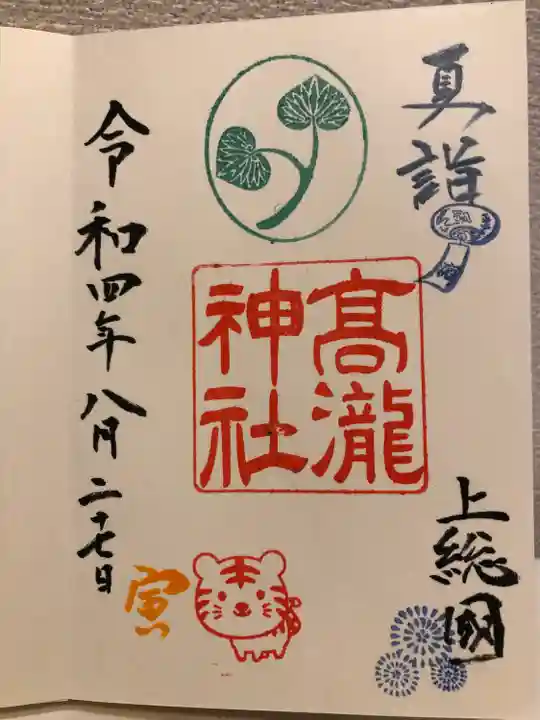 夏詣
上総國
髙瀧
神社
寅
令和四年八月二十七日